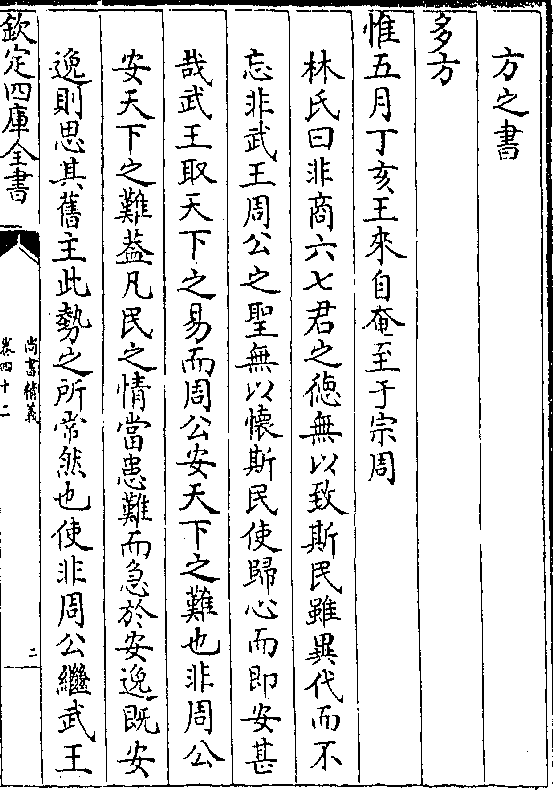 方之書
多方
惟五月丁亥王來自奄至于宗周
林氏曰非商六七君之徳無以致斯民雖異代而不
忘非武王周公之聖無以懷斯民使歸心而即安甚
哉武王取天下之易而周公安天下之難也非周公
安天下之難葢凡民之情當患難而急於安逸既安
逸則思其舊主此勢之所常然也使非周公繼武王
欽定四庫全書
尚書精義
卷四十二
二